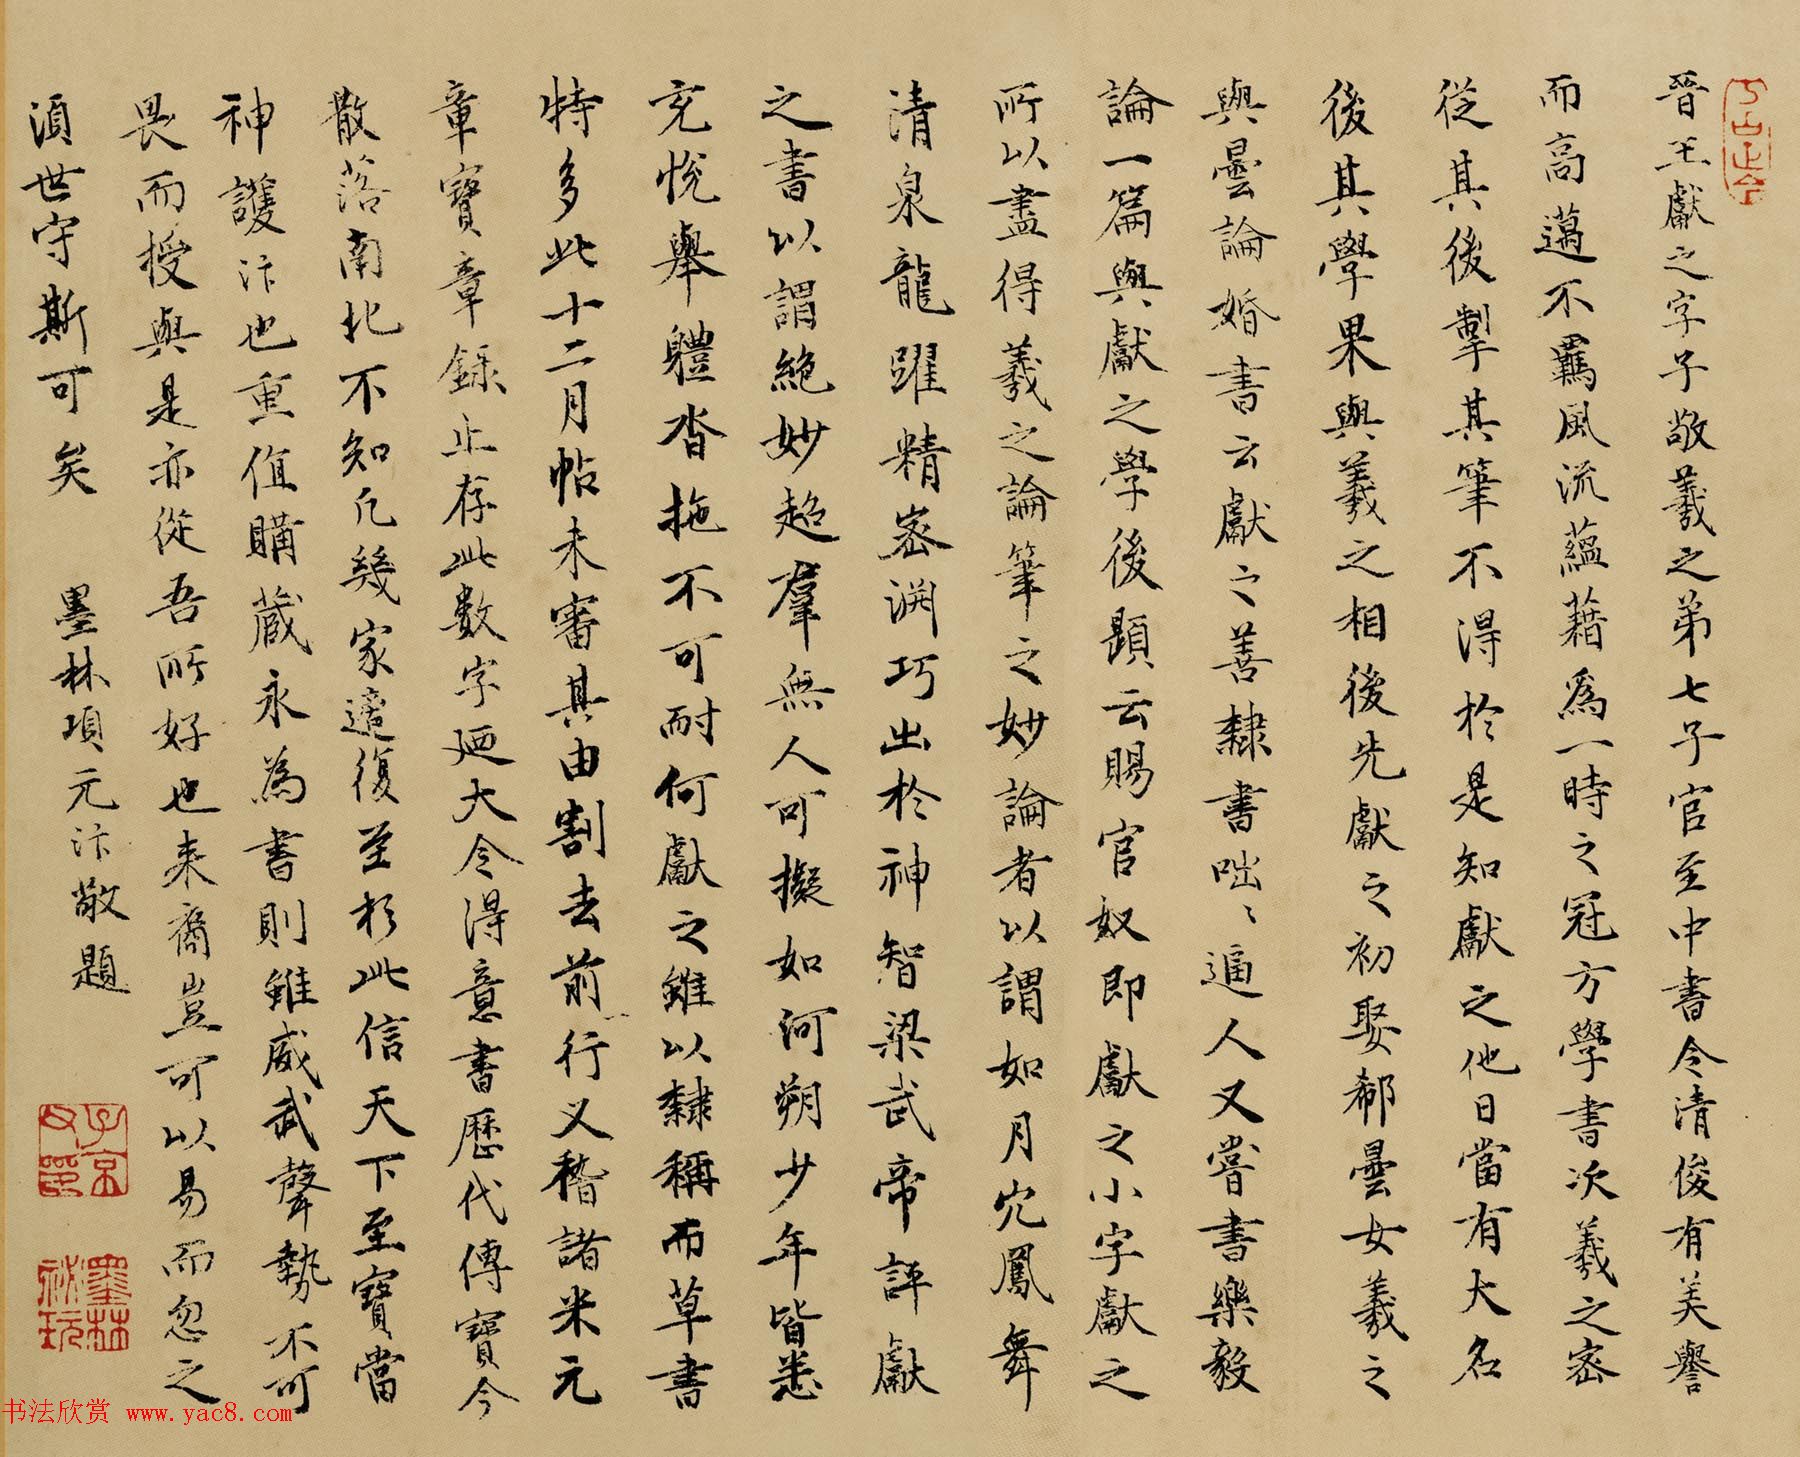 晉王獻之字子敬羲之第七子官至中書令清俊有美譽
而高邁不羈風流蘊藉為一時之冠方學書次羲之密
從其後掣其筆不得於是知獻之他日當有大名
後其學果與羲之相後先獻之初娶郗曇女羲之
與曇論婚書云獻之善隸書咄〻逼人又嘗書樂毅
論一篇與獻之學後題云賜官奴即獻之小字獻之
所以盡得羲之論筆之妙論者以謂如丹穴鳳舞
清泉龍躍精密淵巧出於神智梁武帝評獻
之書以謂絕妙超羣無人可擬如河朔少年皆悉
充悅舉體沓拖不可耐何獻之雖以隸稱而草書
特多此十二月帖未審其由割去前行又稽諸米元
章寶章錄止存此數字迺大令得意書歷代傳寶今
散落南北不知凡幾家遞復至於此信天下至寶當
神護汴也重值購藏永為書則雖威武聲勢不可
畏而授與是亦從吾所好也来裔豈可以易而忽之
須世守斯可矣 墨林項元汴敬題
子京父印
墨林祕玩
书法欣赏 www.yac8.com